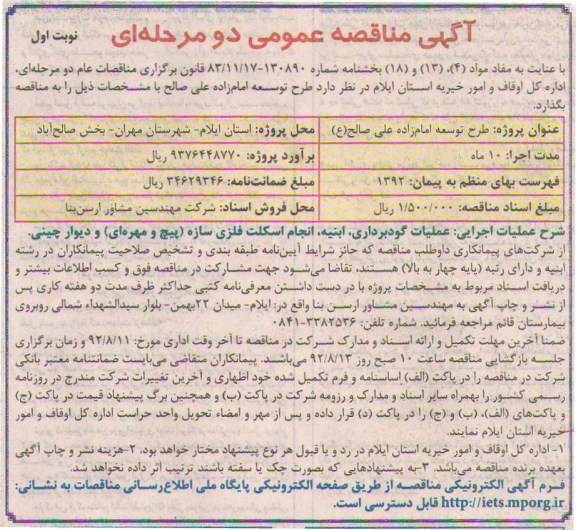 آگهی مناقصه عمومی دو مرحله‌ای
نوبت اول
با عنایت به مفاد مواد (۴)، (۱۳) و (۱۸) بخشنامه شماره ۱۳۰۸۹۰-۸۳/۱۱/۱۷ قانون برگزاری مناقصات عام دو مرحله‌ای،
اداره کل اوقاف و امور خیریه استان ایلام در نظر دارد طرح توسعه امام‌زاده علی صالح با مشخصات ذیل را به مناقصه
بگذارد:
عنوان پروژه: طرح توسعه امام‌زاده علی صالح(ع)
محل پروژه: استان ایلام- شهرستان مهران- بخش صالح‌آباد
مدت اجرا: ۱۰ ماه
برآورد پروژه: ۹۳۷۶۴۴۸۷۷۰ ریال
فهرست بهای منظم به پیمان: ۱۳۹۲
مبلغ ضمانت‌نامه: ۳۴۶۲۹۳۴۶ ریال
مبلغ اسناد مناقصه: ۱/۵۰۰/۰۰۰ ریال
محل فروش اسناد: شرکت مهندسین مشاور ارسن‌بنا
شرح عملیات اجرایی: عملیات گودبرداری، ابنیه، انجام اسکلت فلزی سازه (پیچ و مهره‌ای) و دیوار چینی.
از شرکت‌های پیمانکاری داوطلب مناقصه که حائز شرایط آیین‌نامه طبقه بندی و تشخیص صلاحیت پیمانکاران در رشته
ابنیه و دارای رتبه (پایه چهار به بالا) هستند، تقاضا می‌شود جهت مشارکت در مناقصه فوق و کسب اطلاعات بیشتر و
دریافت اسناد مربوط به مشخصات پروژه با در دست داشتن معرفی‌نامه کتبی حداکثر ظرف مدت دو هفته کاری پس
از نشر و چاپ آگهی به مهندسین مشاور ارسن بنا واقع در: ایلام- میدان ۲۲بهمن- بلوار سیدالشهداء شمالی روبروی
بیمارستان قائم مراجعه فرمائید. شماره تلفن: ۳۳۸۲۵۳۶-۰۸۴۱
ضمنا آخرین مهلت تکمیل و ارائه اسناد و مدارک شرکت در مناقصه تا آخر وقت اداری مورخ: ۹۲/۸/۱۱ و زمان برگزاری
جلسه بازگشایی مناقصه ساعت ۱۰ صبح روز ۹۲/۸/۱۳ می‌باشد. پیمانکاران متقاضی می‌بایست ضمانتنامه معتبر بانکی
شرکت در مناقصه را در پاکت (الف) اساسنامه و فرم تکمیل شده خود اظهاری و آخرین تغییرات شرکت مندرج در روزنامه
رسمی کشور را بهمراه سایر اسناد و مدارک و رزومه شرکت در پاکت (ب) و همچنین برگ پیشنهاد قیمت در پاکت (ج)
و پاکت‌های (الف)، (ب) و (ج) را در پاکت (د) قرار داده و پس از مهر و امضاء تحویل واحد حراست اداره کل اوقاف و امور
خیریه استان ایلام نمایند.
۱- اداره کل اوقاف و امور خیریه استان ایلام در رد و یا قبول هر نوع پیشنهاد مختار خواهد بود. ۲-هزینه نشر و چاپ آگهی
بعهده برنده مناقصه می‌باشد. ۳-به پیشنهادهایی که بصورت چک یا سفته باشند ترتیب اثر داده نخواهد شد.
فرم آگهی الکترونیکی مناقصه از طریق صفحه الکترونیکی پایگاه ملی اطلاع‌رسانی مناقصات به نشانی:
http://iets.mporg.ir قابل دسترسی است.